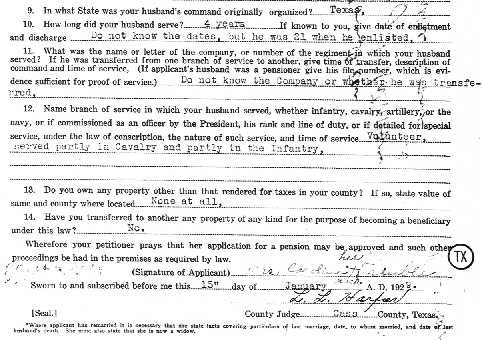 9. In what State was your husband's command originally organized? Texas,
10. How long did your husband serve? 4 years If known to you, give date of enlistment
and discharge Do not know the dates, but he was 21 when he enlisted.
11. What was the name or letter of the company, or number of the regiment in which your husband
served? If he was transferred from one branch of service to another, give time of transfer, description of
command and time of service. (If applicant's husband was a pensioner give his file number, which is evi-
dence sufficient for proof of service.) Do not know the Company or whether he was transfe-
rred.
12. Name branch of service in which your husband served, whether infantry, cavalry, artillery, or the
navy, or if commissioned as an officer by the President, his rank and line of duty, or if detailed for special
service, under the law of conscription, the nature of such service, and time of service. Volunteer,
served partly in Cavalry and partly in the Infantry,
13. Do you own any property other than that rendered for taxes in your county? If so, state value of
same and county where located None at all,
14. Have you transferred to another any property of any kind for the purpose of becoming a beneficiary
under this law? No.
Wherefore your petitioner prays that her application for a pension may be approved and such other
proceedings be had in the premises as required by law. her
TX
(Signature of Applicant)
Sworn to and subscribed before me this 15" day of January A. D. 192
L. L. Harper
[Seal.] County Judge Cass County, Texas.
*Where applicant has remarried it is necessary that she state facts covering particulars of last marriage, date, to whom married, and date of last
husband's death. She must also state that she is now a widow.